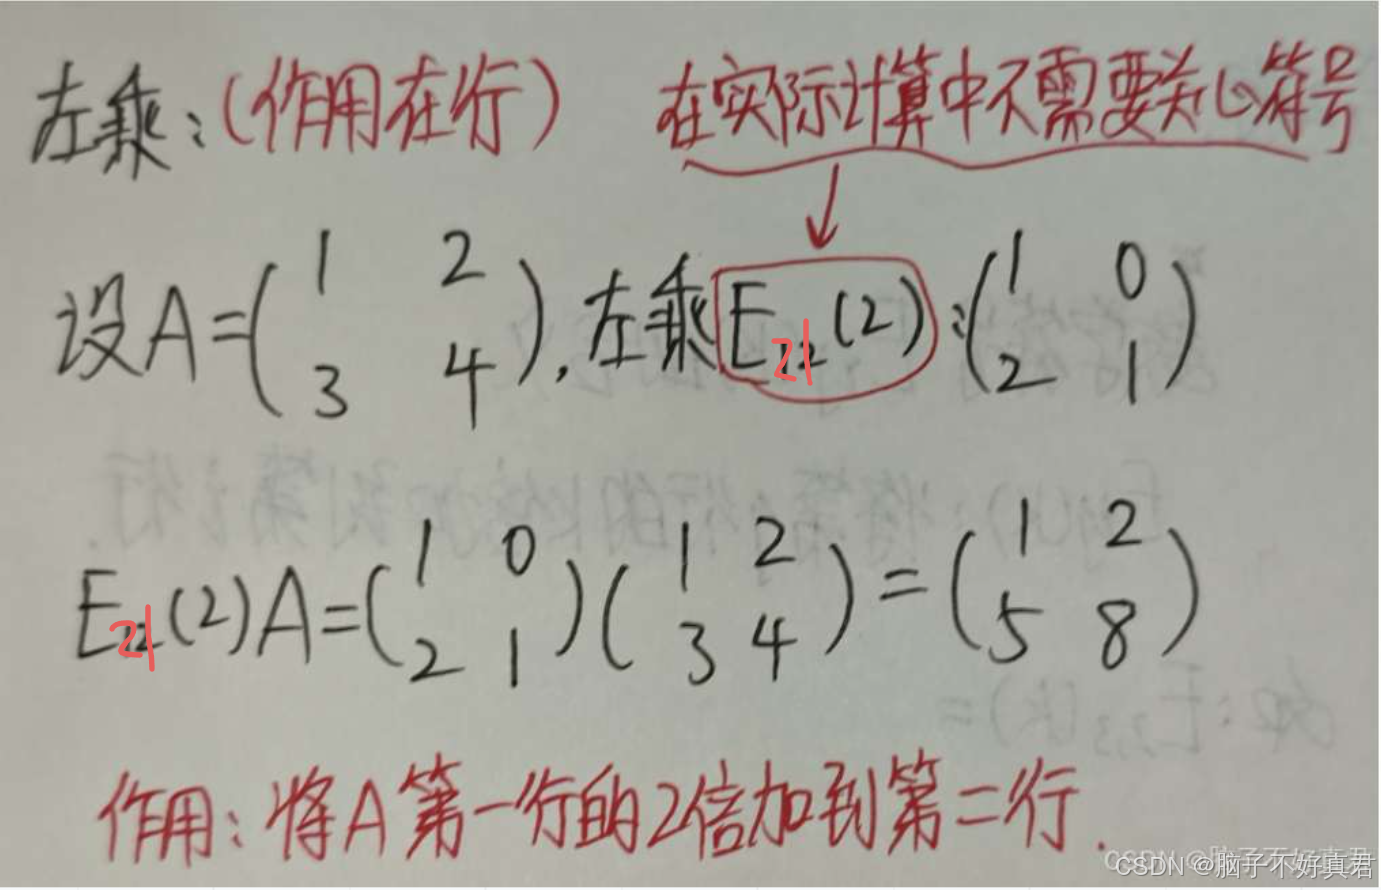 左乘：(作用在行) 在实际计算中不需要关心符号
设A=(1 2
3 4),左乘E21(2):(1 0
2 1)
E21(2)A=(1 0
2 1)(1 2
3 4)=(1 2
5 8)
作用：将A第一行的2倍加到第二行.
CSDN @脑子不好真君